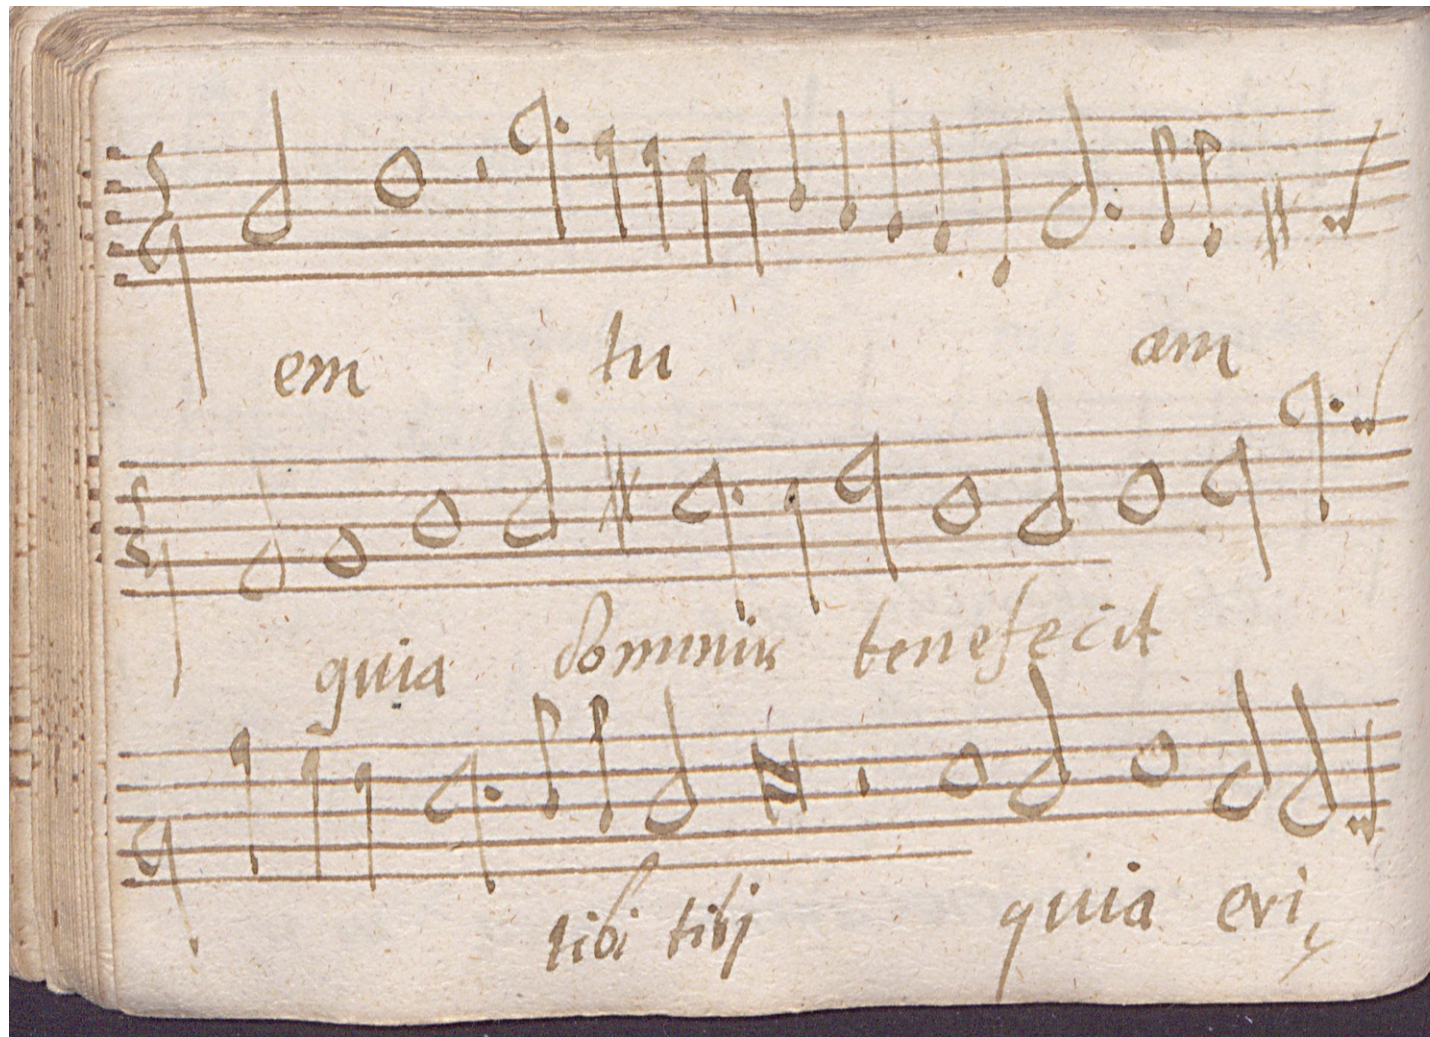 em tu am
quia dominus benefecit
tibi tibj quia eri,